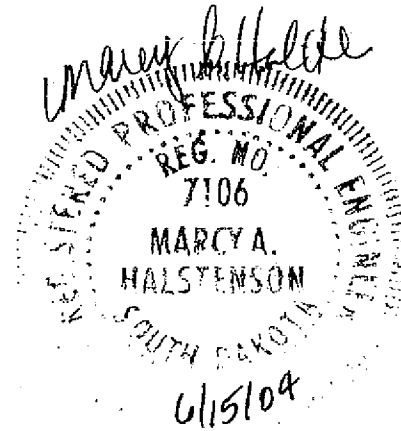 REGISTERED PROFESSIONAL ENGINEER
REG. NO.
7106
MARCY A.
HALSTENSON
SOUTH DAKOTA
6/15/04